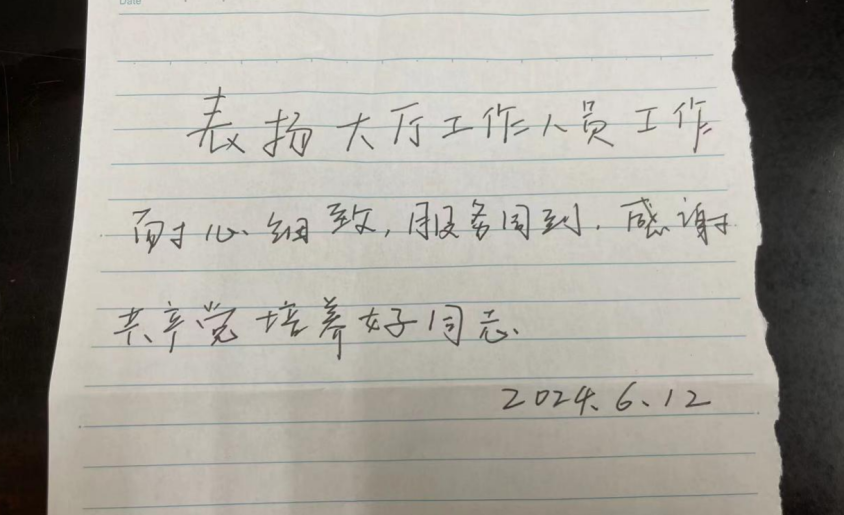 Date
表扬大厅工作人员工作
耐心细致，服务周到．感谢
共产党培养好同志．
2024.6.12